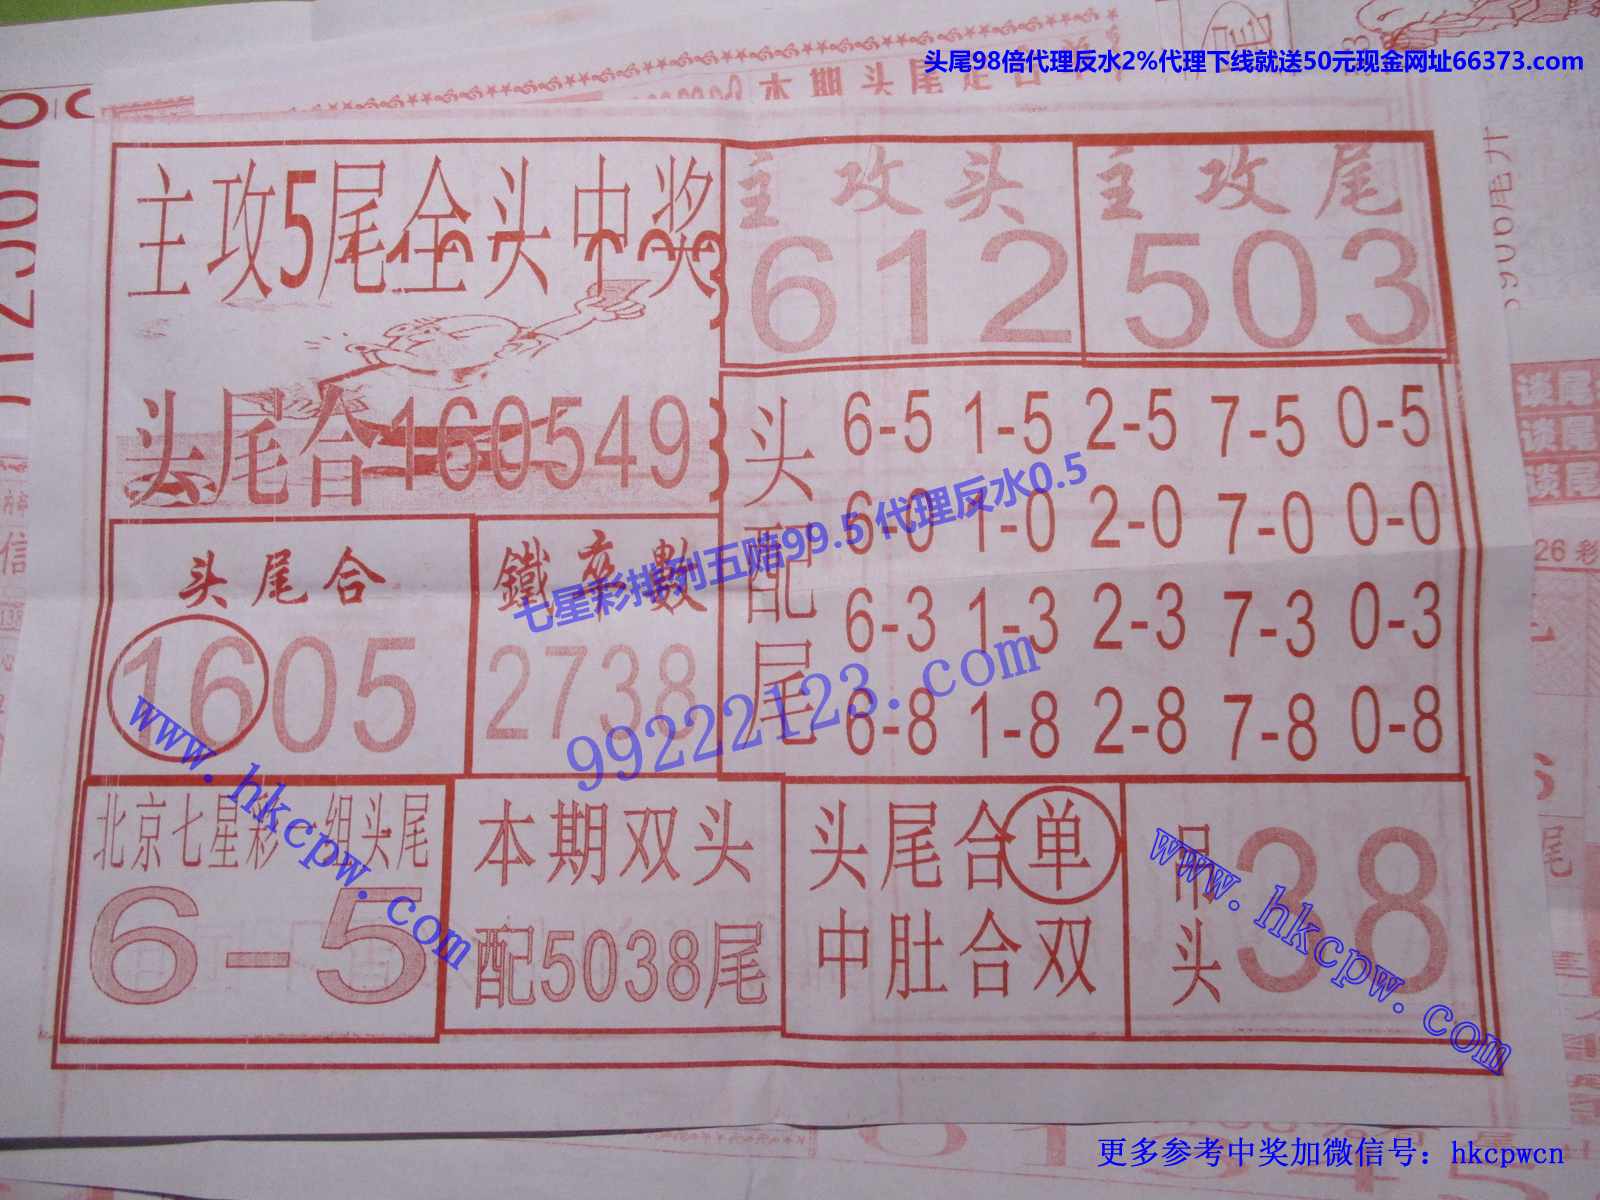 头尾98倍代理反水2%代理下线就送50元现金网址66373.com
本期头尾定合单
主攻5尾全头中奖
头尾合160549
主攻头
612
主攻尾
503
头配尾
6-5 1-5 2-5 7-5 0-5
6-0 1-0 2-0 7-0 0-0
6-3 1-3 2-3 7-3 0-3
6-8 1-8 2-8 7-8 0-8
七星彩排列五赔99.5代理反水0.5
99222123.com
头尾合
1605
鐵卒數
2738
www.hkcpw.com
北京七星彩一组头尾
6-5
本期双头
配5038尾
头尾合单
中肚合双
吊头
38
www.hkcpw.com
谈尾
谈尾
谈尾
26 彩
信
尾
更多参考中奖加微信号：hkcpwcn